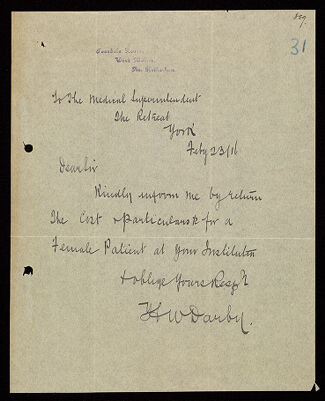 859.
31
West
Nr. Rotherham
To The Medical Superintendent
The Retreat
York
Feby 23/16
Dear Sir
Kindly inform me by return
The Cost & particulars &c for a
Female Patient at your Institution
& oblige Yours Respy
H W Darby.